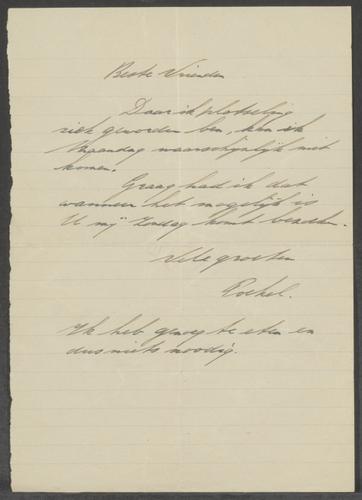 Beste Vrienden
Daar ik plotseling
ziek geworden ben, kan ik
Maandag waarschijnlijk niet
komen.
Graag had ik dat
wanneer het mogelijk is
U mij Zondag komt bezoeken.
Vele groeten
Rachel.
Ik heb genoeg te eten en
dus niets noodig.